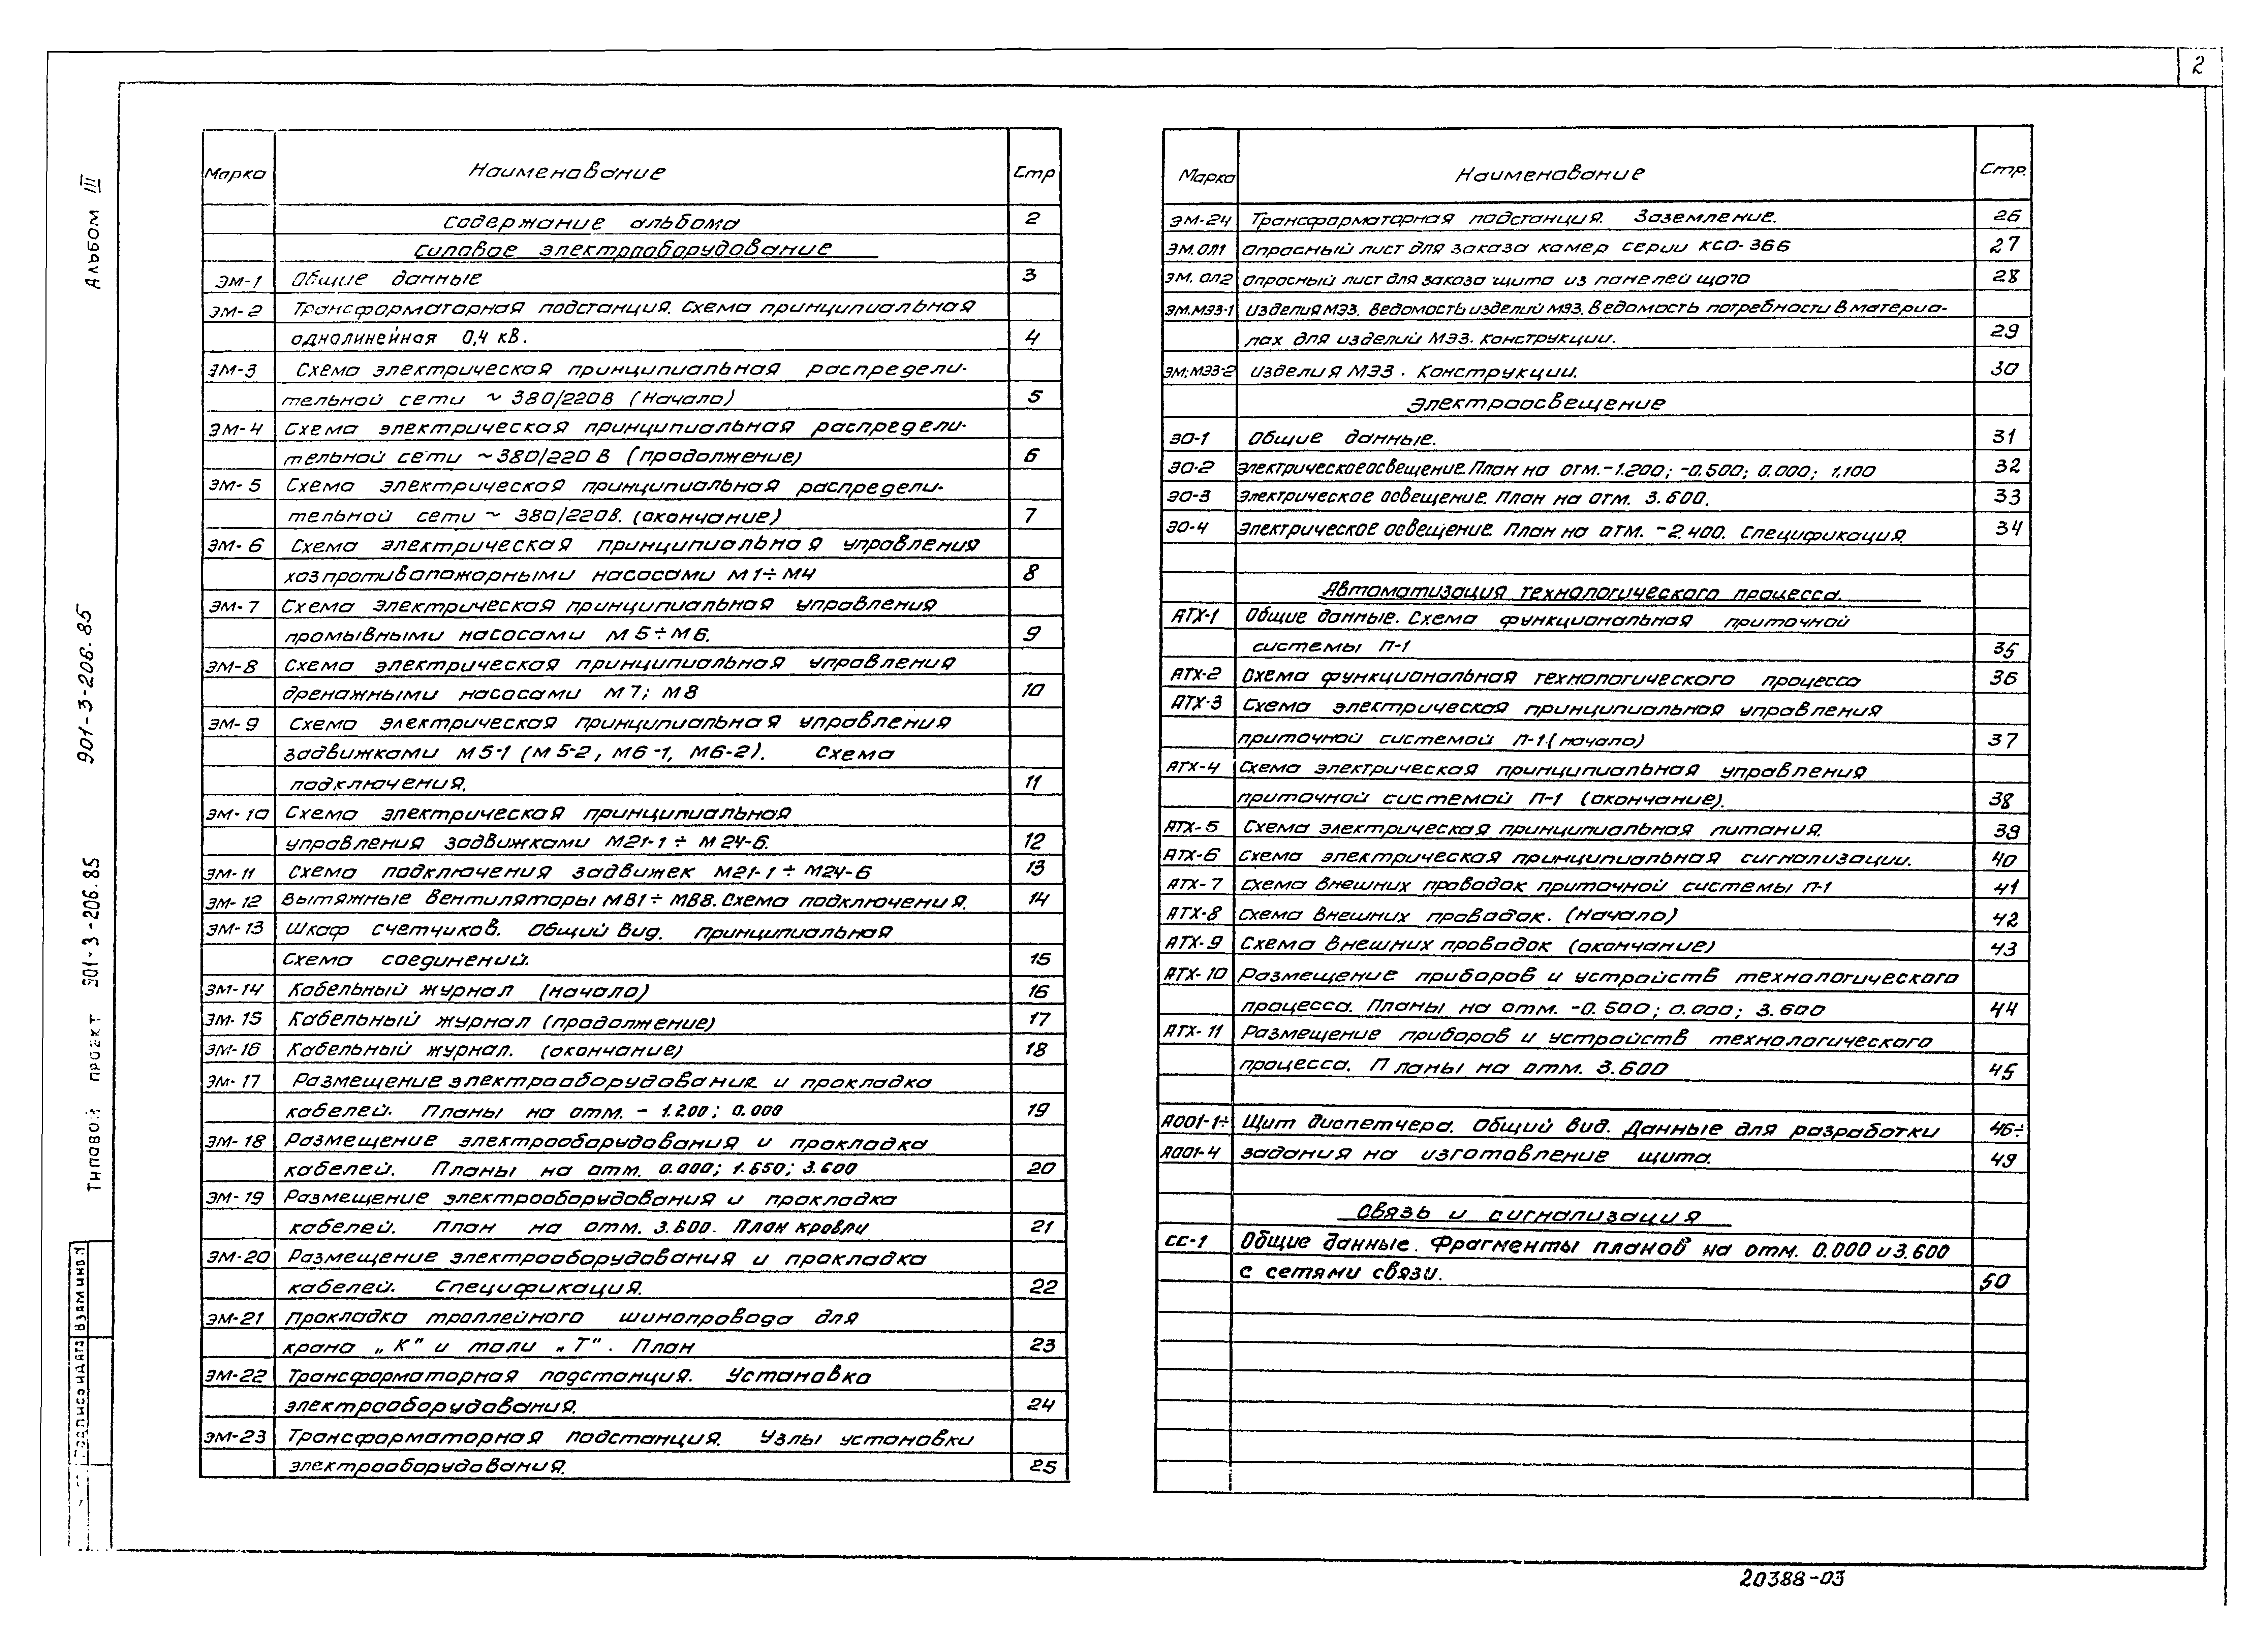 2
Альбом III
901-3-206.85
Типовой проект 901-3-206.85
Марка Наименование Стр
Содержание альбома 2
Силовое электрооборудование
ЭМ-1 Общие данные 3
ЭМ-2 Трансформаторная подстанция. Схема принципиальная
однолинейная 0,4 кВ. 4
ЭМ-3 Схема электрическая принципиальная распредели-
тельной сети ~ 380/220В (начало) 5
ЭМ-4 Схема электрическая принципиальная распредели-
тельной сети ~380/220 В (продолжение) 6
ЭМ-5 Схема электрическая принципиальная распредели-
тельной сети ~ 380/220В. (окончание) 7
ЭМ-6 Схема электрическая принципиальная управления
хозпротивопожарными насосами М1÷М4 8
ЭМ-7 Схема электрическая принципиальная управления
промывными насосами М5÷М6. 9
ЭМ-8 Схема электрическая принципиальная управления
дренажными насосами М7; М8 10
ЭМ-9 Схема электрическая принципиальная управления
задвижками М5-1 (М5-2, М6-1, М6-2). Схема
подключения. 11
ЭМ-10 Схема электрическая принципиальная
управления задвижками М21-1 ÷ М24-6. 12
ЭМ-11 Схема подключения задвижек М21-1 ÷ М24-6 13
ЭМ-12 Вытяжные вентиляторы МВ1÷МВ8. Схема подключения. 14
ЭМ-13 Шкаф счетчиков. Общий вид. Принципиальная
схема соединений. 15
ЭМ-14 Кабельный журнал (начало) 16
ЭМ-15 Кабельный журнал (продолжение) 17
ЭМ-16 Кабельный журнал. (окончание) 18
ЭМ-17 Размещение электрооборудования и прокладка
кабелей. Планы на отм. -1.200; 0.000 19
ЭМ-18 Размещение электрооборудования и прокладка
кабелей. Планы на отм. 0.000; 1.650; 3.600 20
ЭМ-19 Размещение электрооборудования и прокладка
кабелей. План на отм. 3.600. План кровли 21
ЭМ-20 Размещение электрооборудования и прокладка
кабелей. Спецификация. 22
ЭМ-21 Прокладка троллейного шинопровода для
крана „К" и тали „Т". План 23
ЭМ-22 Трансформаторная подстанция. Установка
электрооборудования. 24
ЭМ-23 Трансформаторная подстанция. Узлы установки
электрооборудования. 25
Марка Наименование Стр.
ЭМ-24 Трансформаторная подстанция. Заземление. 26
ЭМ.ОЛ1 Опросный лист для заказа камер серии КСО-366 27
ЭМ.ОЛ2 Опросный лист для заказа щита из панелей ЩО70 28
ЭМ.МЭЗ-1 Изделия МЭЗ. Ведомость изделий МЭЗ. Ведомость потребности в материа-
лах для изделий МЭЗ. Конструкции. 29
ЭМ.МЭЗ-2 Изделия МЭЗ. Конструкции. 30
Электроосвещение
ЭО-1 Общие данные. 31
ЭО-2 Электрическое освещение. План на отм. -1.200; -0.500; 0.000; 1.100 32
ЭО-3 Электрическое освещение. План на отм. 3.600. 33
ЭО-4 Электрическое освещение. План на отм. -2.400. Спецификация. 34
Автоматизация технологического процесса.
АТХ-1 Общие данные. Схема функциональная приточной
системы П-1 35
АТХ-2 Схема функциональная технологического процесса 36
АТХ-3 Схема электрическая принципиальная управления
приточной системой П-1 (начало) 37
АТХ-4 Схема электрическая принципиальная управления
приточной системой П-1 (окончание). 38
АТХ-5 Схема электрическая принципиальная питания. 39
АТХ-6 Схема электрическая принципиальная сигнализации. 40
АТХ-7 Схема внешних проводок приточной системы П-1 41
АТХ-8 Схема внешних проводок. (начало) 42
АТХ-9 Схема внешних проводок (окончание) 43
АТХ-10 Размещение приборов и устройств технологического
процесса. Планы на отм. -0.500; 0.000; 3.600 44
АТХ-11 Размещение приборов и устройств технологического
процесса. Планы на отм. 3.600 45
А001-1÷ Щит диспетчера. Общий вид. Данные для разработки 46÷
А001-4 задания на изготовление щита. 49
Связь и сигнализация
СС-1 Общие данные. Фрагменты планов на отм. 0.000 и 3.600
с сетями связи. 50
Взам.инв.№
Подпись и дата
20388-03